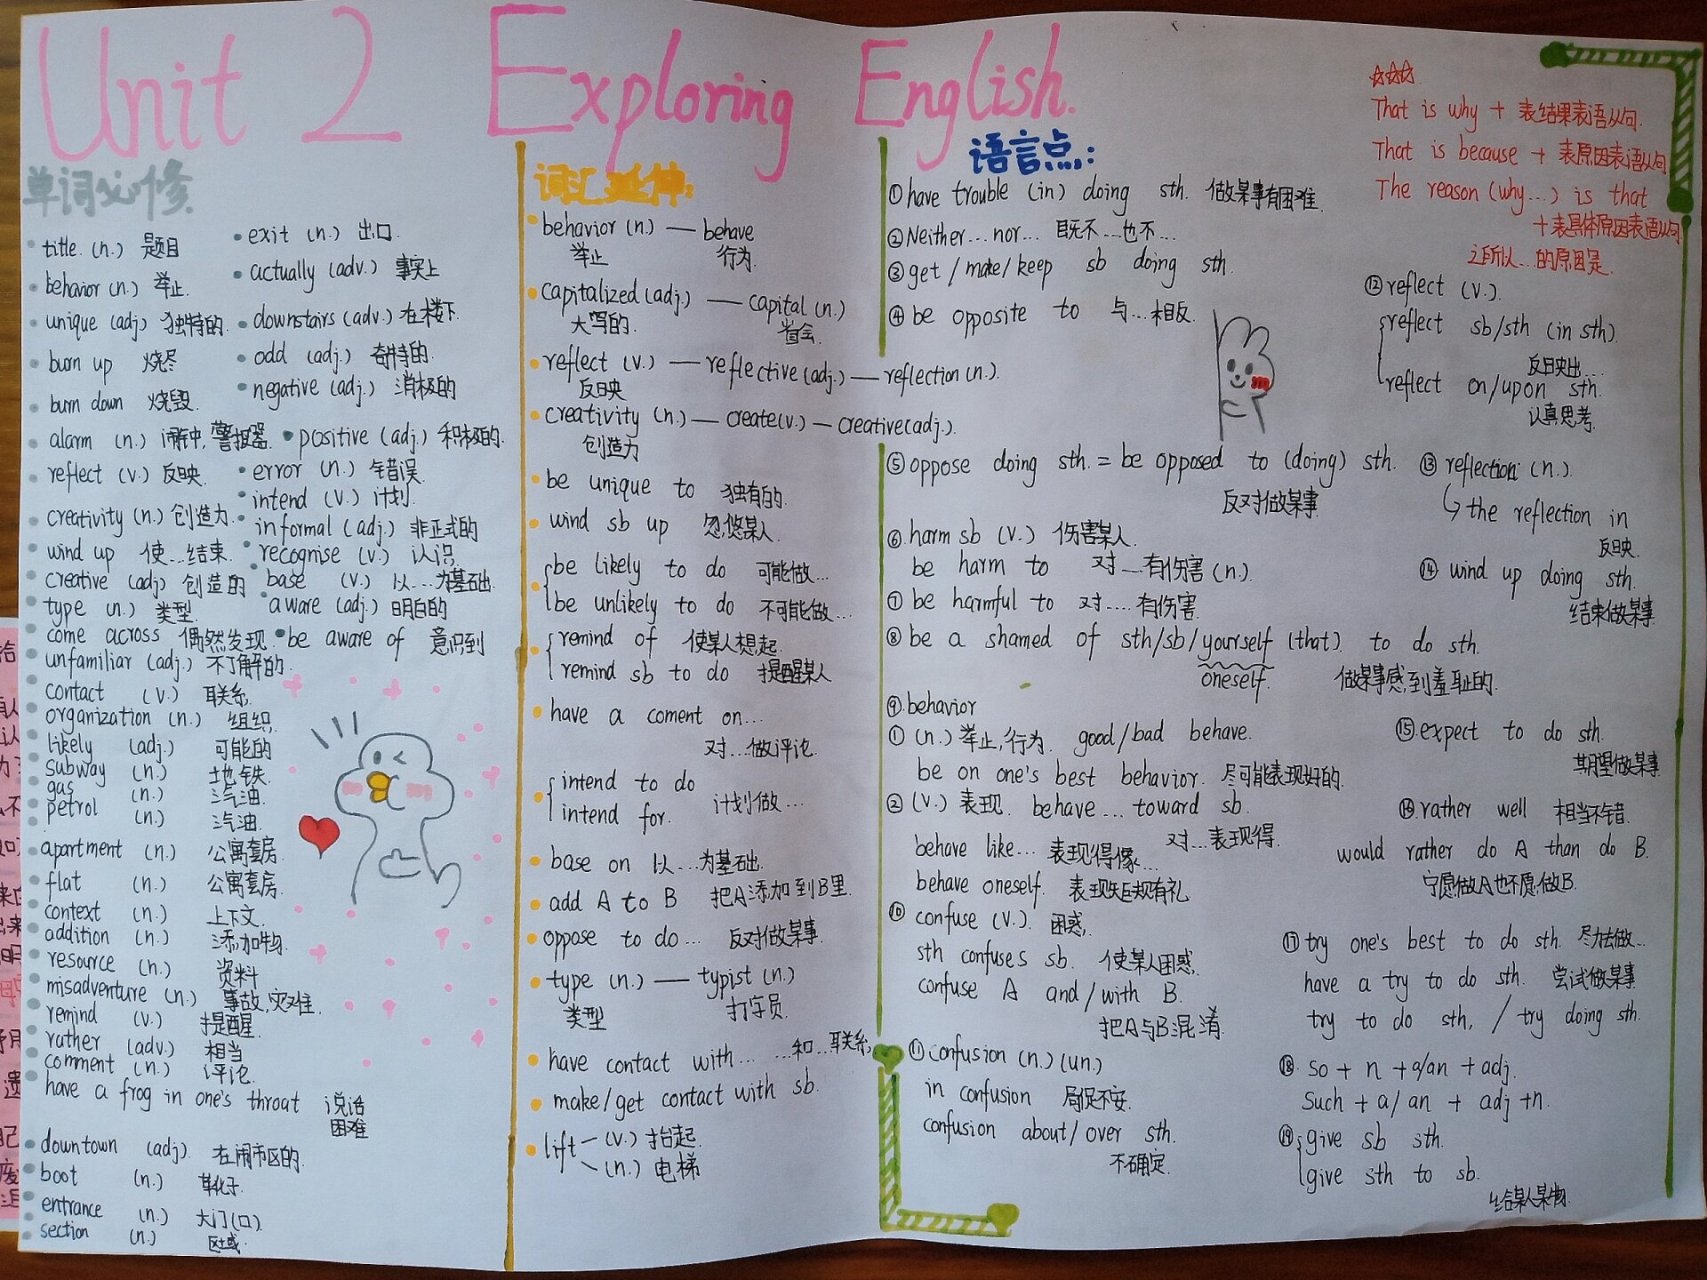 Unit 2 Exploring English.
单词必修
title (n.) 题目
behavior (n.) 举止
unique (adj) 独特的
burn up 烧尽
burn down 烧毁
alarm (n.) 闹钟,警报器
reflect (v.) 反映
creativity (n.) 创造力
wind up 使…结束
creative (adj) 创造的
type (n.) 类型
come across 偶然发现
unfamiliar (adj.) 不了解的
contact (v.) 联系
organization (n.) 组织
likely (adj.) 可能的
subway (n.) 地铁
gas (n.) 汽油
petrol (n.) 汽油
apartment (n.) 公寓套房
flat (n.) 公寓套房
context (n.) 上下文
addition (n.) 添加物
resource (n.) 资料
misadventure (n.) 事故,灾难
remind (v.) 提醒
rather (adv.) 相当
comment (n.) 评论
have a frog in one's throat 说话
困难
downtown (adj) 在闹市区的
boot (n.) 靴子
entrance (n.) 大门(口)
section (n.) 区域
exit (n.) 出口
actually (adv.) 事实上
downstairs (adv.) 在楼下
odd (adj.) 奇特的
negative (adj.) 消极的
positive (adj.) 积极的
error (n.) 错误
intend (v.) 计划
informal (adj.) 非正式的
recognise (v.) 认识
base (v.) 以…为基础
aware (adj.) 明白的
be aware of 意识到
词汇延伸:
behavior (n.) — behave
举止 行为
capitalized (adj.) — capital (n.)
大写的 省会
reflect (v.) — reflective (adj.) — reflection (n.)
反映
creativity (n.) — create (v.) — creative (adj.)
创造力
be unique to 独有的
wind sb up 忽悠某人
be likely to do 可能做…
be unlikely to do 不可能做…
remind of 使某人想起
remind sb to do 提醒某人
have a coment on…
对…做评论
intend to do
intend for. 计划做…
base on 以…为基础
add A to B 把A添加到B里
oppose to do… 反对做某事
type (n.) — typist (n.)
类型 打字员
have contact with… …和…联系
make/get contact with sb.
lift (v.) 抬起
(n.) 电梯
语言点:
①have trouble (in) doing sth. 做某事有困难
②Neither… nor… 既不…也不…
③get/make/keep sb doing sth.
④be opposite to 与…相反
⑤oppose doing sth. = be opposed to (doing) sth.
反对做某事
⑥harm sb (v.) 伤害某人
be harm to 对…有伤害 (n.)
⑦be harmful to 对…有伤害
⑧be a shamed of sth/sb/yourself (that). to do sth.
oneself. 做某事感到羞耻的
⑨behavior
①(n.) 举止,行为. good/bad behave.
be on one's best behavior. 尽可能表现好的
②(v.) 表现. behave… toward sb.
对…表现得
behave like… 表现得像…
behave oneself. 表现规规有礼
⑩confuse (v.) 困惑
sth confuses sb. 使某人困惑
confuse A and/with B.
把A与B混淆
⑪confusion (n.) (un.)
in confusion 局促不安
confusion about/over sth.
不确定
☆☆☆
That is why + 表结果表语从句.
That is because + 表原因表语从句
The reason (why…) is that
+表具体原因表语从句
之所以…的原因是
⑫reflect (v.)
reflect sb/sth (in sth)
反映出…
reflect on/upon sth.
认真思考
⑬reflection (n.)
the reflection in
反映
⑭wind up doing sth.
结束做某事
⑮expect to do sth.
期望做某事
⑯rather well 相当不错
would rather do A than do B
宁愿做A也不愿做B
⑰try one's best to do sth. 尽力去做…
have a try to do sth. 尝试做某事
try to do sth, / try doing sth.
⑱so + n + a/an + adj.
Such + a/an + adj +n.
⑲give sb sth.
give sth to sb.
给某人某物